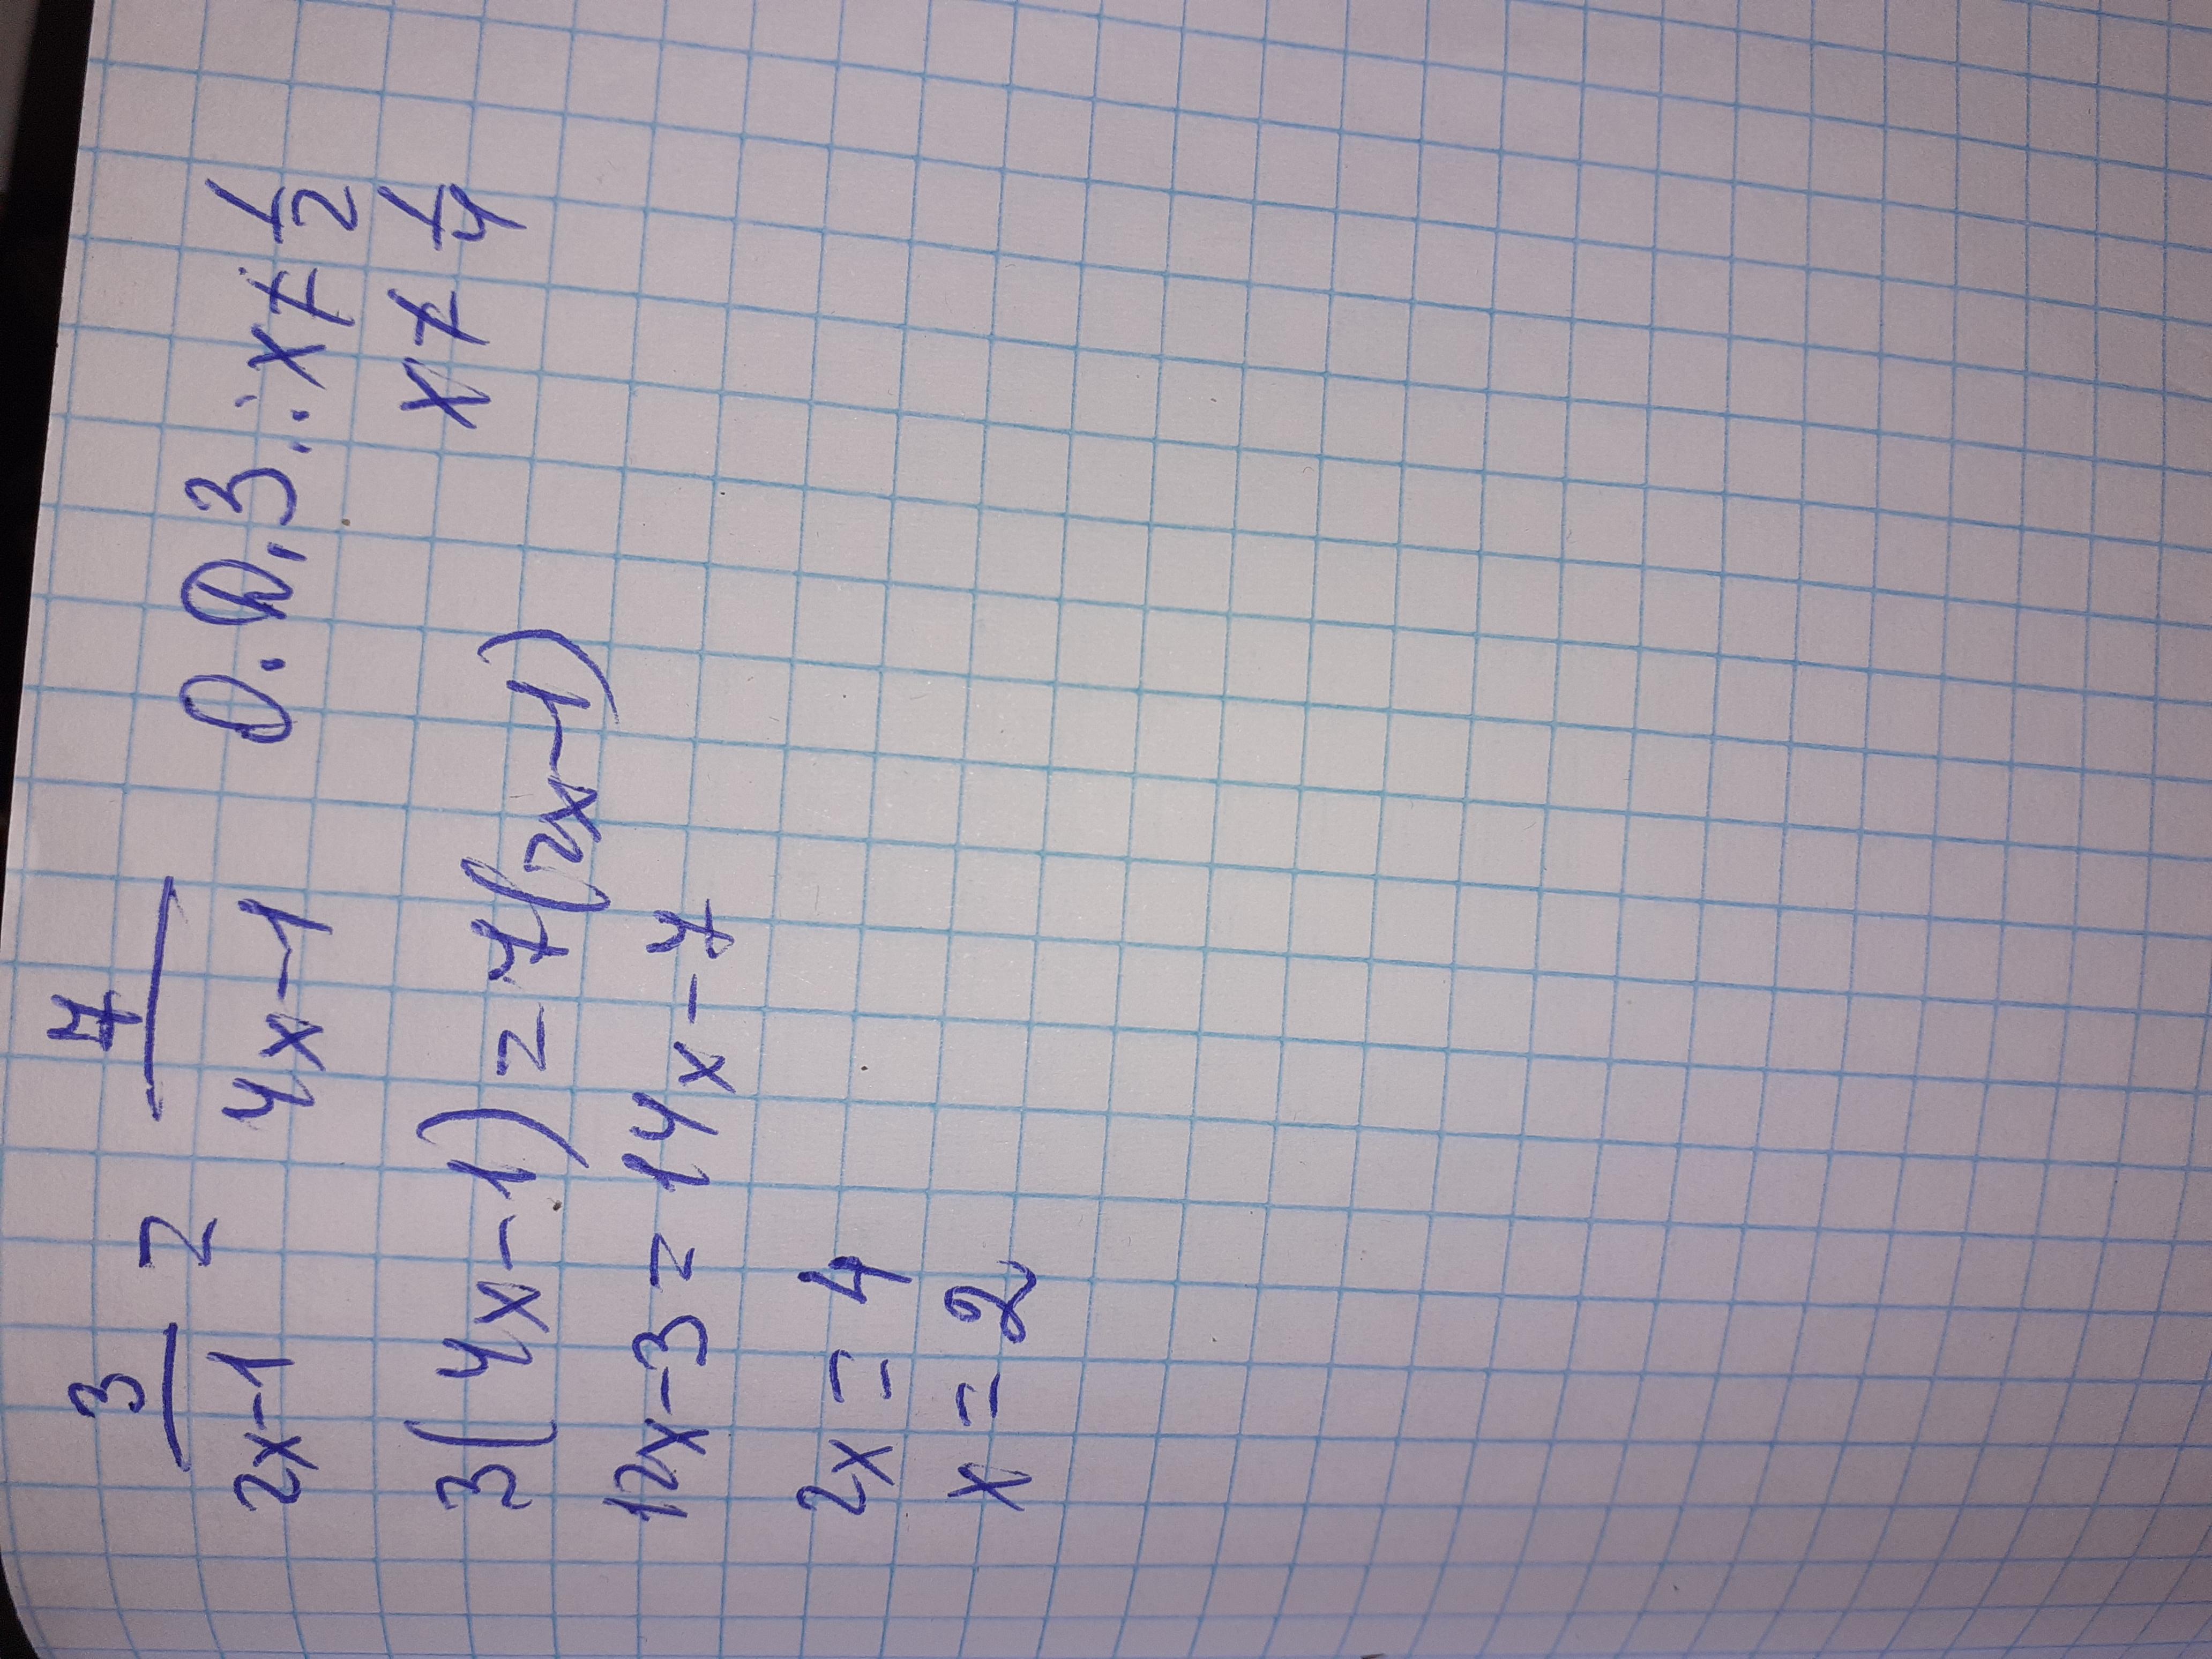 3/(2x-1) = 7/(4x-1) О.Д.З.: x ≠ 1/2
x ≠ 1/4
3(4x-1) = 7(2x-1)
12x-3 = 14x-7
2x = 4
x = 2